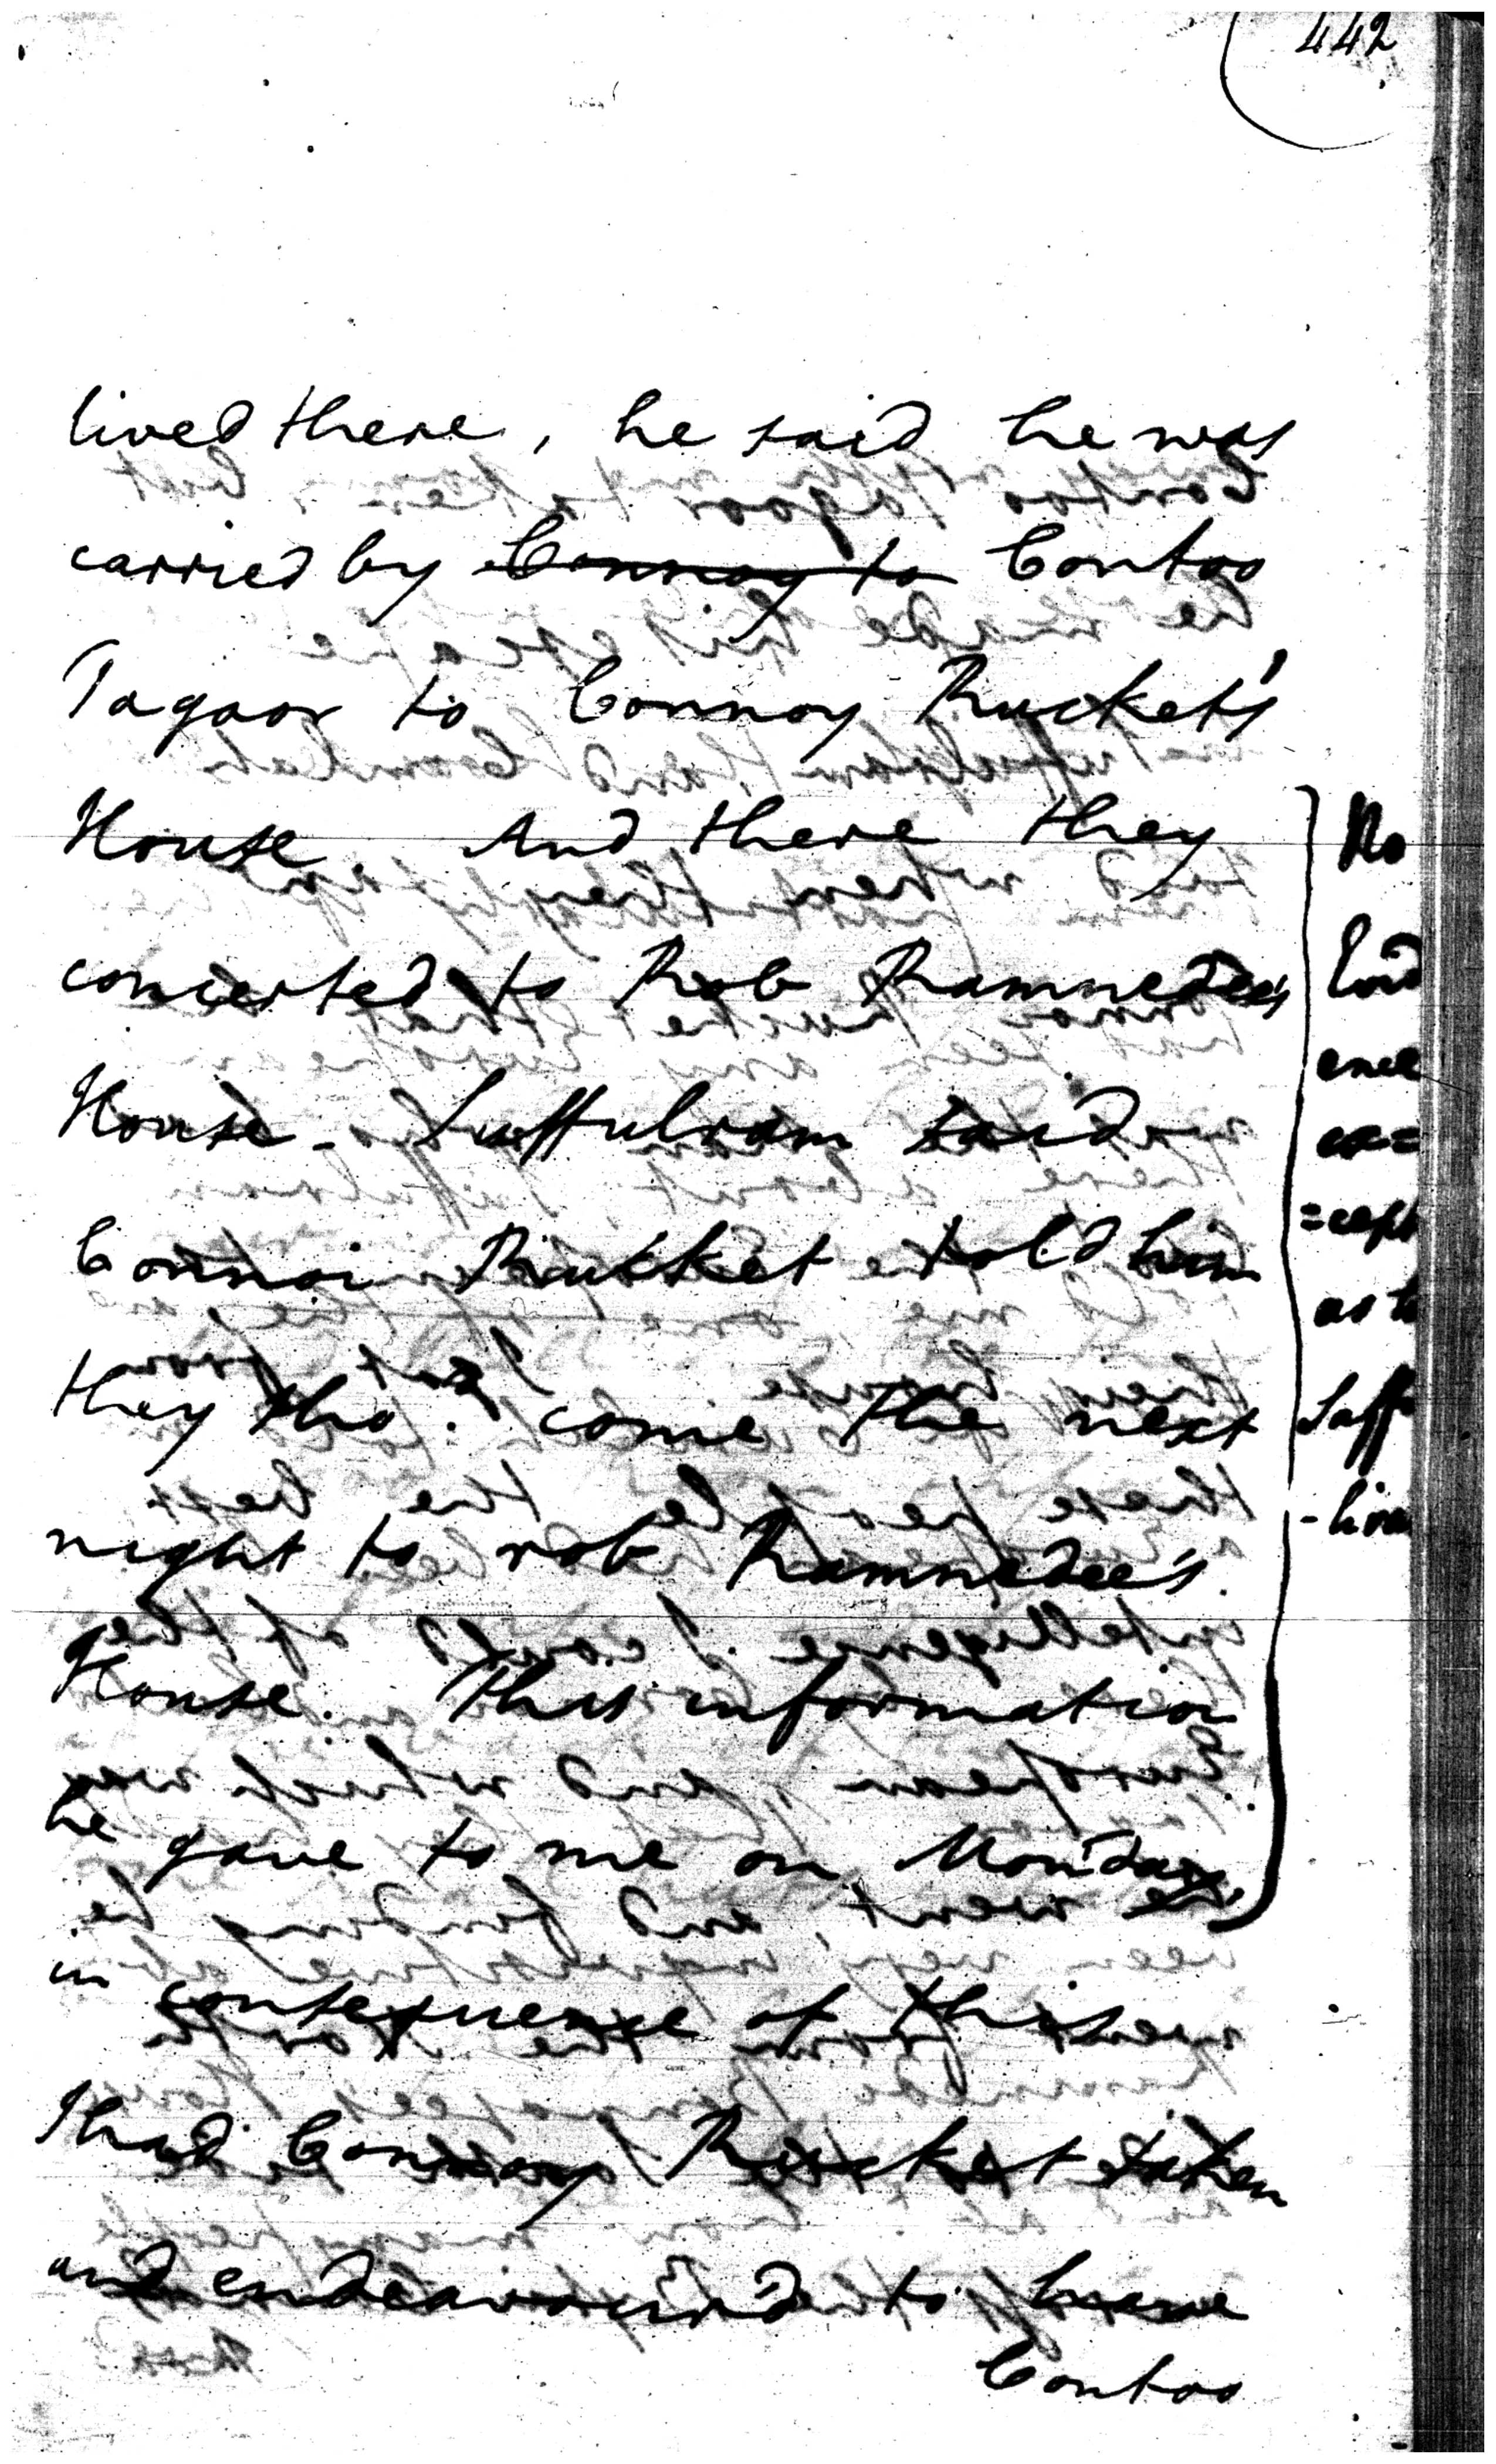 442
lived there, he said he was
carried by Connoy to Contoo
Tagoor to Connoy Rucket's
House. And there they
concerted to Rob Ramnedee's
House - Suffulram said
Connoi Rukket told him
they sho.d come the next
night to rob Ramnedee's
House. This information
he gave to me on Monday,
in consequence of this
I had Connoy Rucket taken
and endeavoured to have
Contoo
No
Evid
ence
ex=
=cept
as to
Suff
-lram